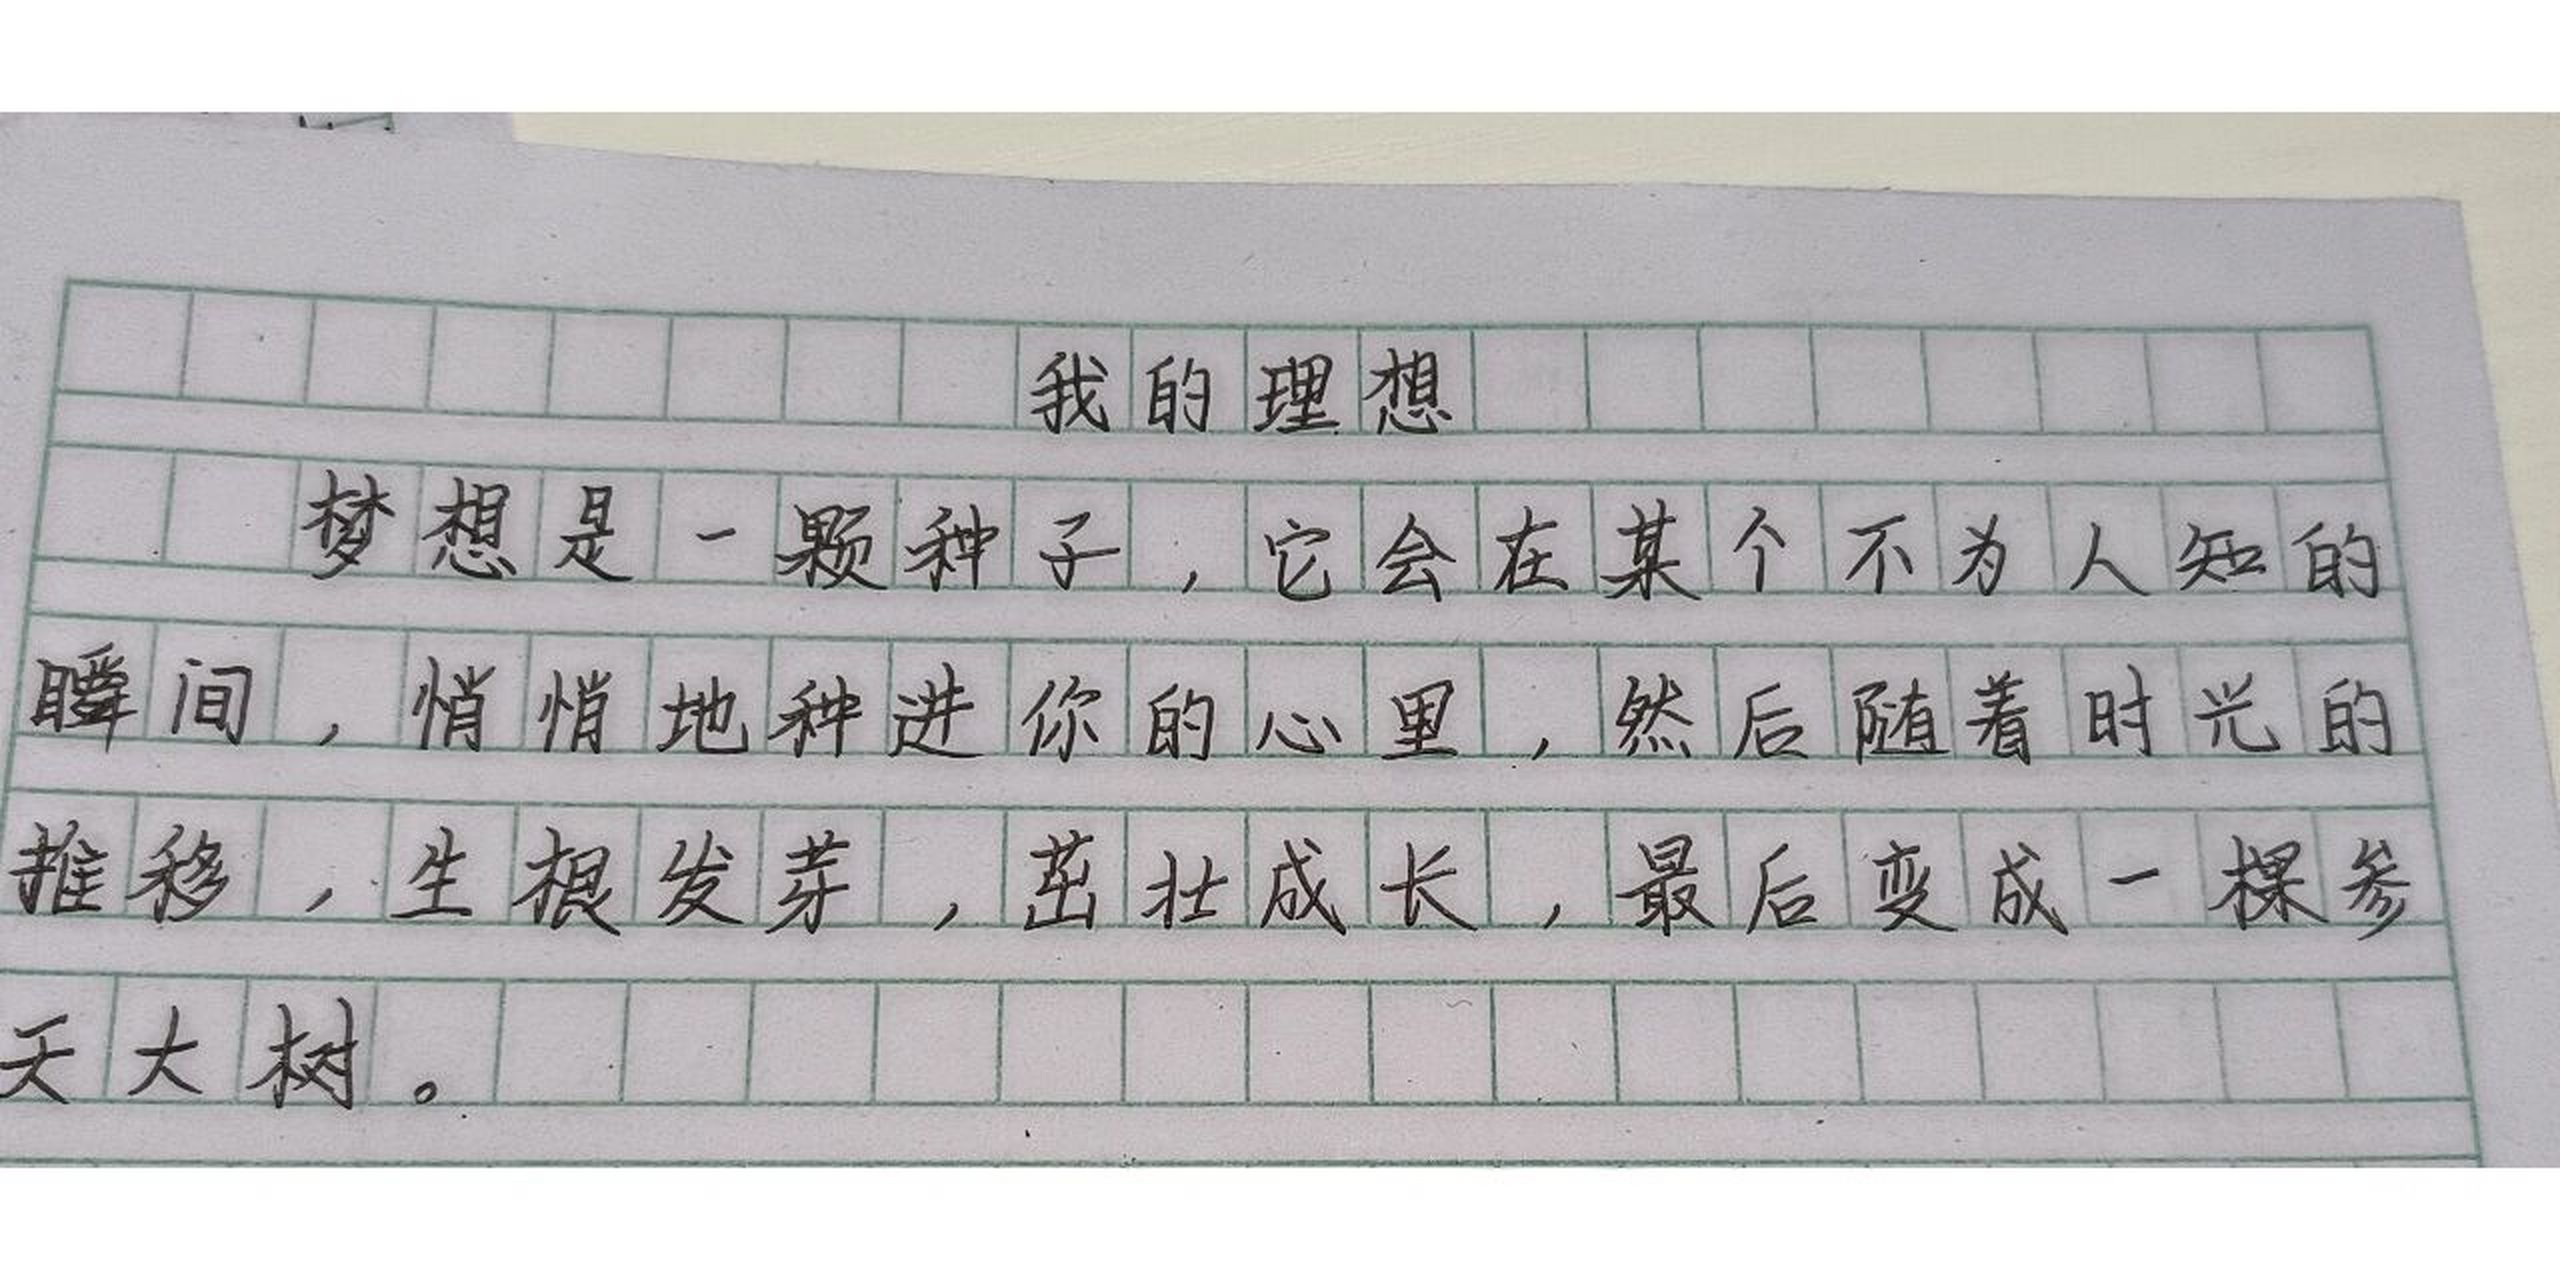 我的理想
梦想是一颗种子，它会在某个不为人知的
瞬间，悄悄地种进你的心里，然后随着时光的
推移，生根发芽，茁壮成长，最后变成一棵参
天大树。